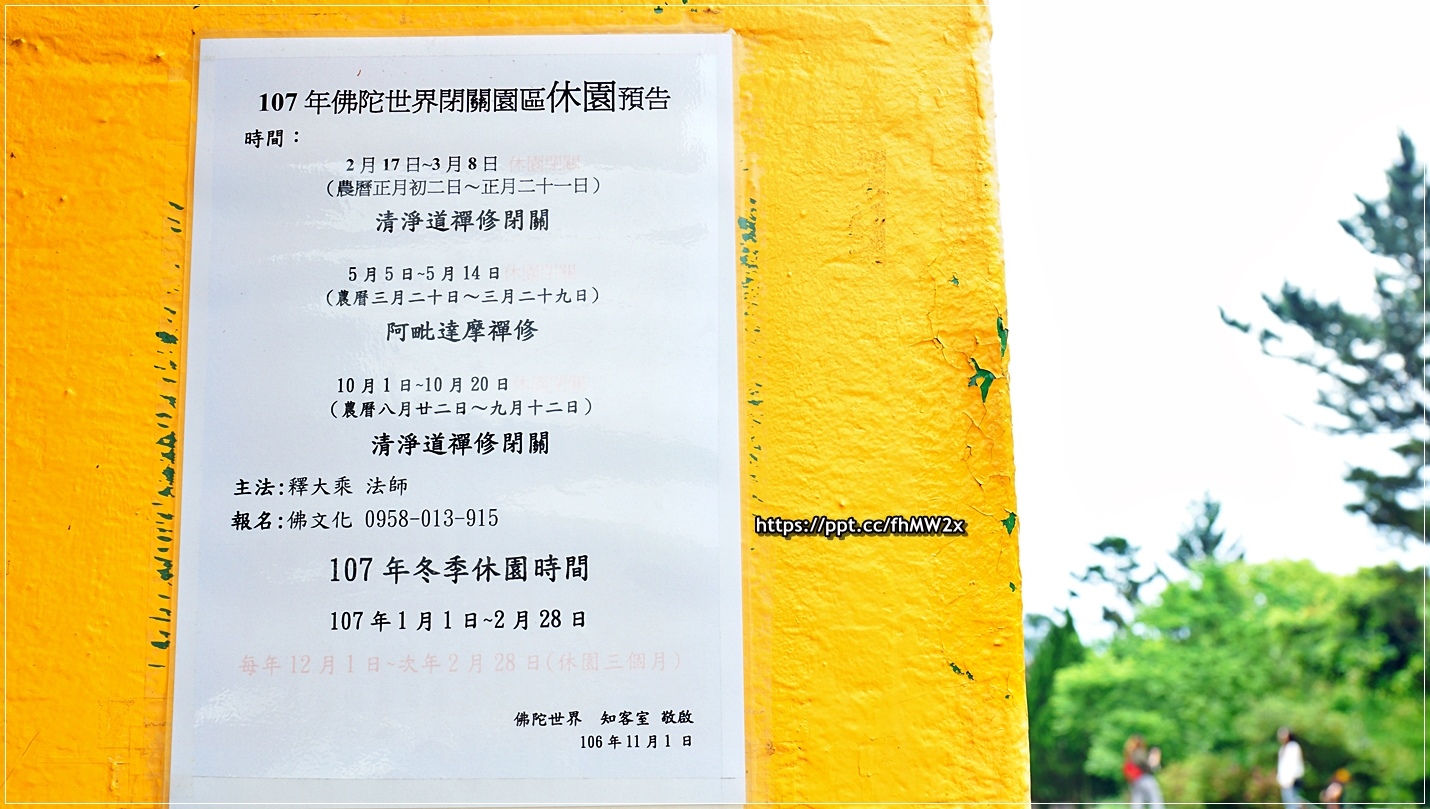 107 年佛陀世界閉關園區休園預告
時間：
2 月 17 日~3 月 8 日 休園閉關
（農曆正月初二日～正月二十一日）
清淨道禪修閉關
5 月 5 日~5 月 14 日 休園閉關
（農曆三月二十日～三月二十九日）
阿毗達摩禪修
10 月 1 日~10 月 20 日 休園閉關
（農曆八月廿二日～九月十二日）
清淨道禪修閉關
主法:釋大乘 法師
報名:佛文化 0958-013-915
https://ppt.cc/fhMW2x
107 年冬季休園時間
107 年 1 月 1 日~2 月 28 日
每年 12 月 1 日~次年 2 月 28 日(休園三個月)
佛陀世界 知客室 敬啟
106 年 11 月 1 日